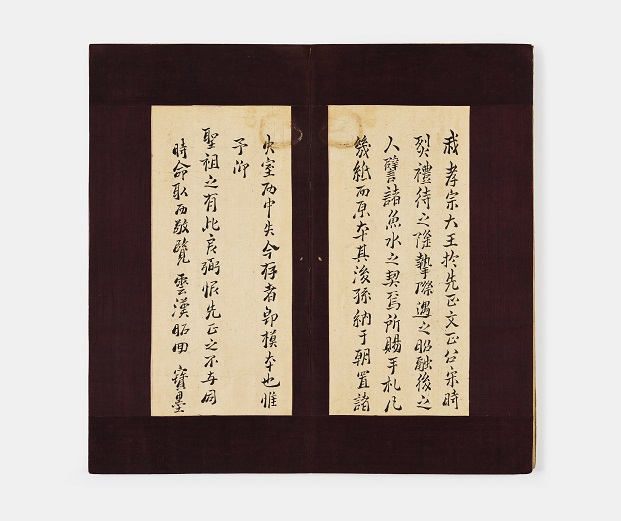 我 孝宗大王於先正文正公宋時
烈禮待之隆摯際遇之昭融後之
人譬諸魚水之契焉所賜手札凡
幾紙而原本其後孫納于朝置諸
室而中失今存者卽模本也惟
予仰
聖祖之有此良弼恨先正之不與同
時命取而敬覽 雲漢昭回 寶墨